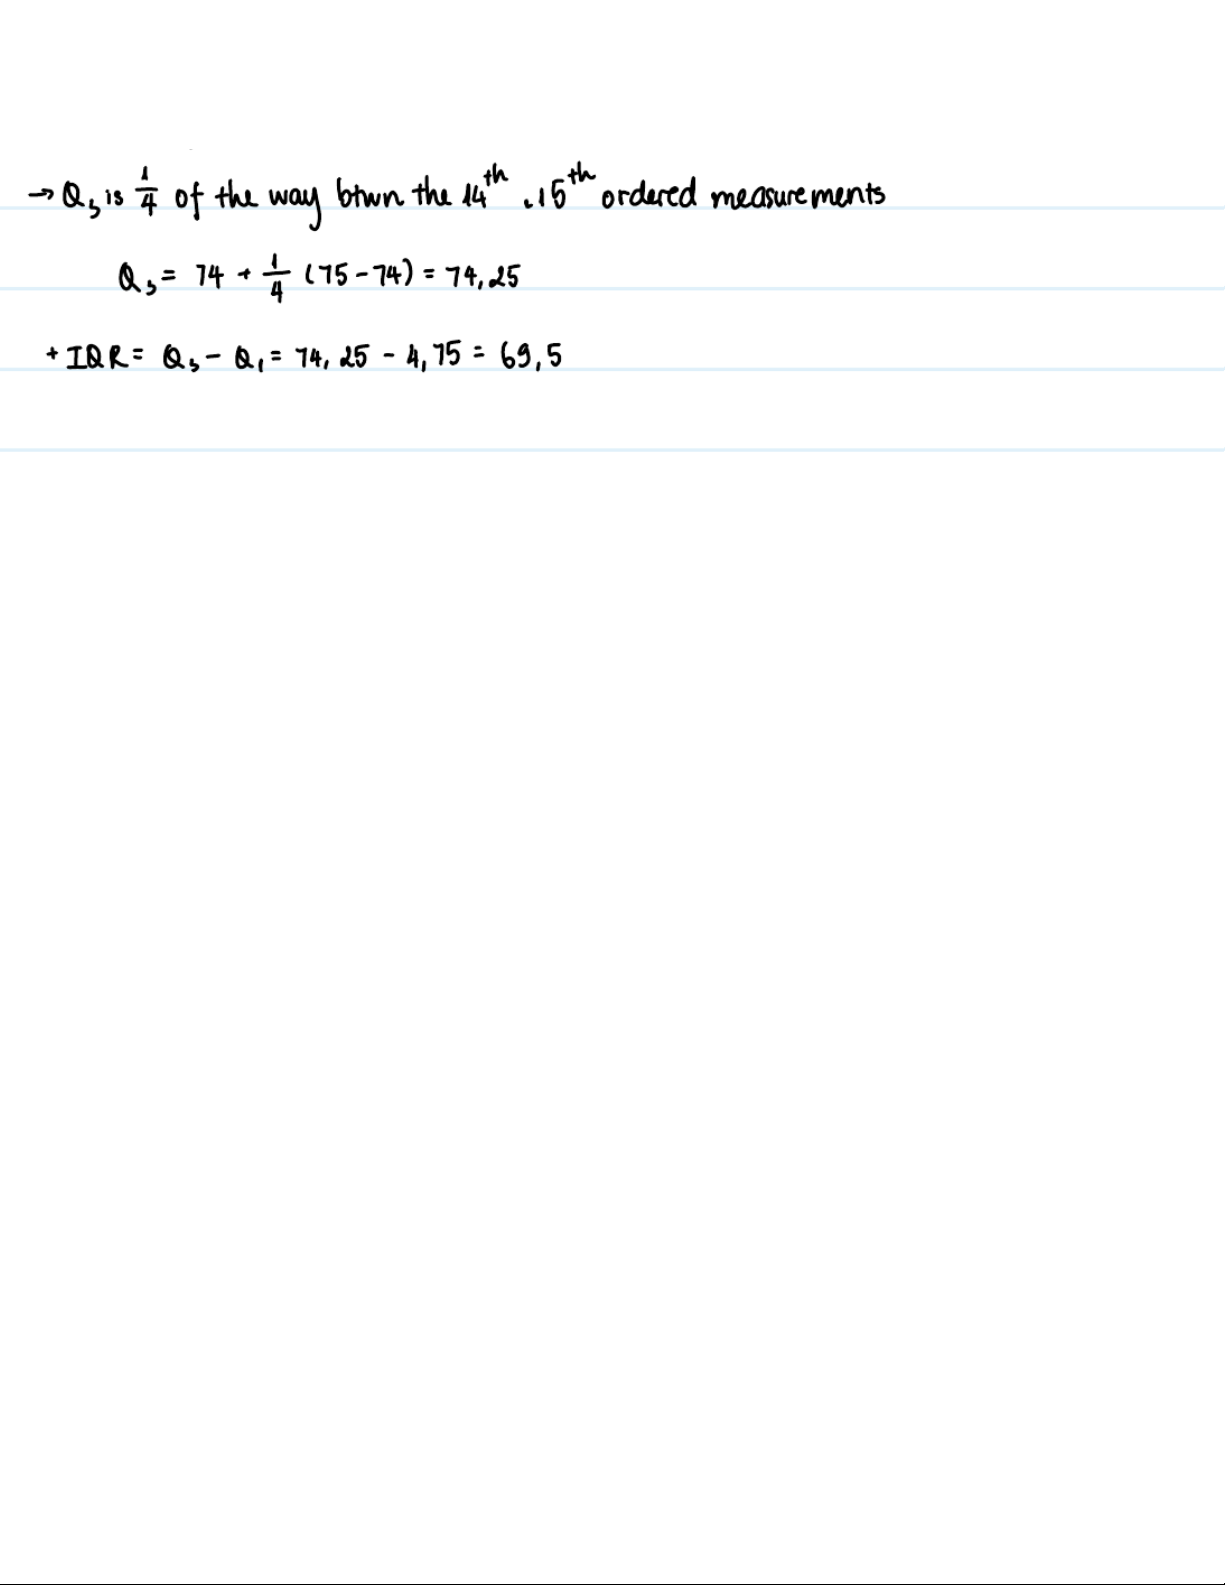 → Q₃ is 1/4 of the way btwn the 14th , 15th ordered measurements
Q₃ = 74 + 1/4 (75 - 74) = 74,25
+ IQR = Q₃ - Q₁ = 74,25 - 4,75 = 69,5